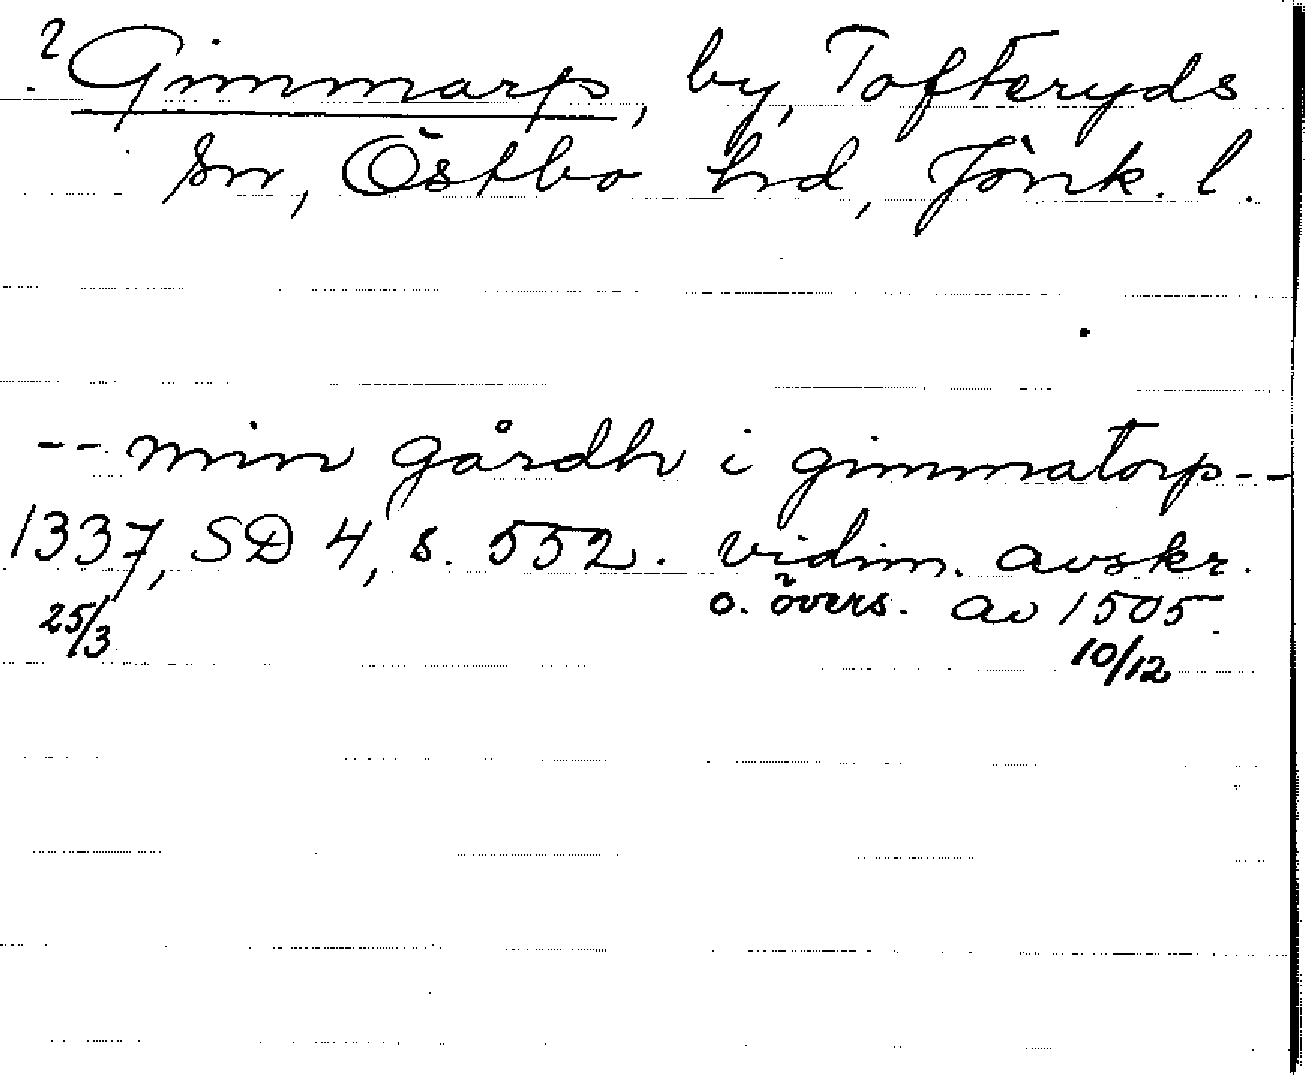 ? Gimmarp, by, Tofteryds
sn, Östbo hd, Jönk. l.
-- min gårdh i gimmatorp --
1337, SD 4, s. 552. vidim. avskr.
25/3 o. övers. av 1505
10/12